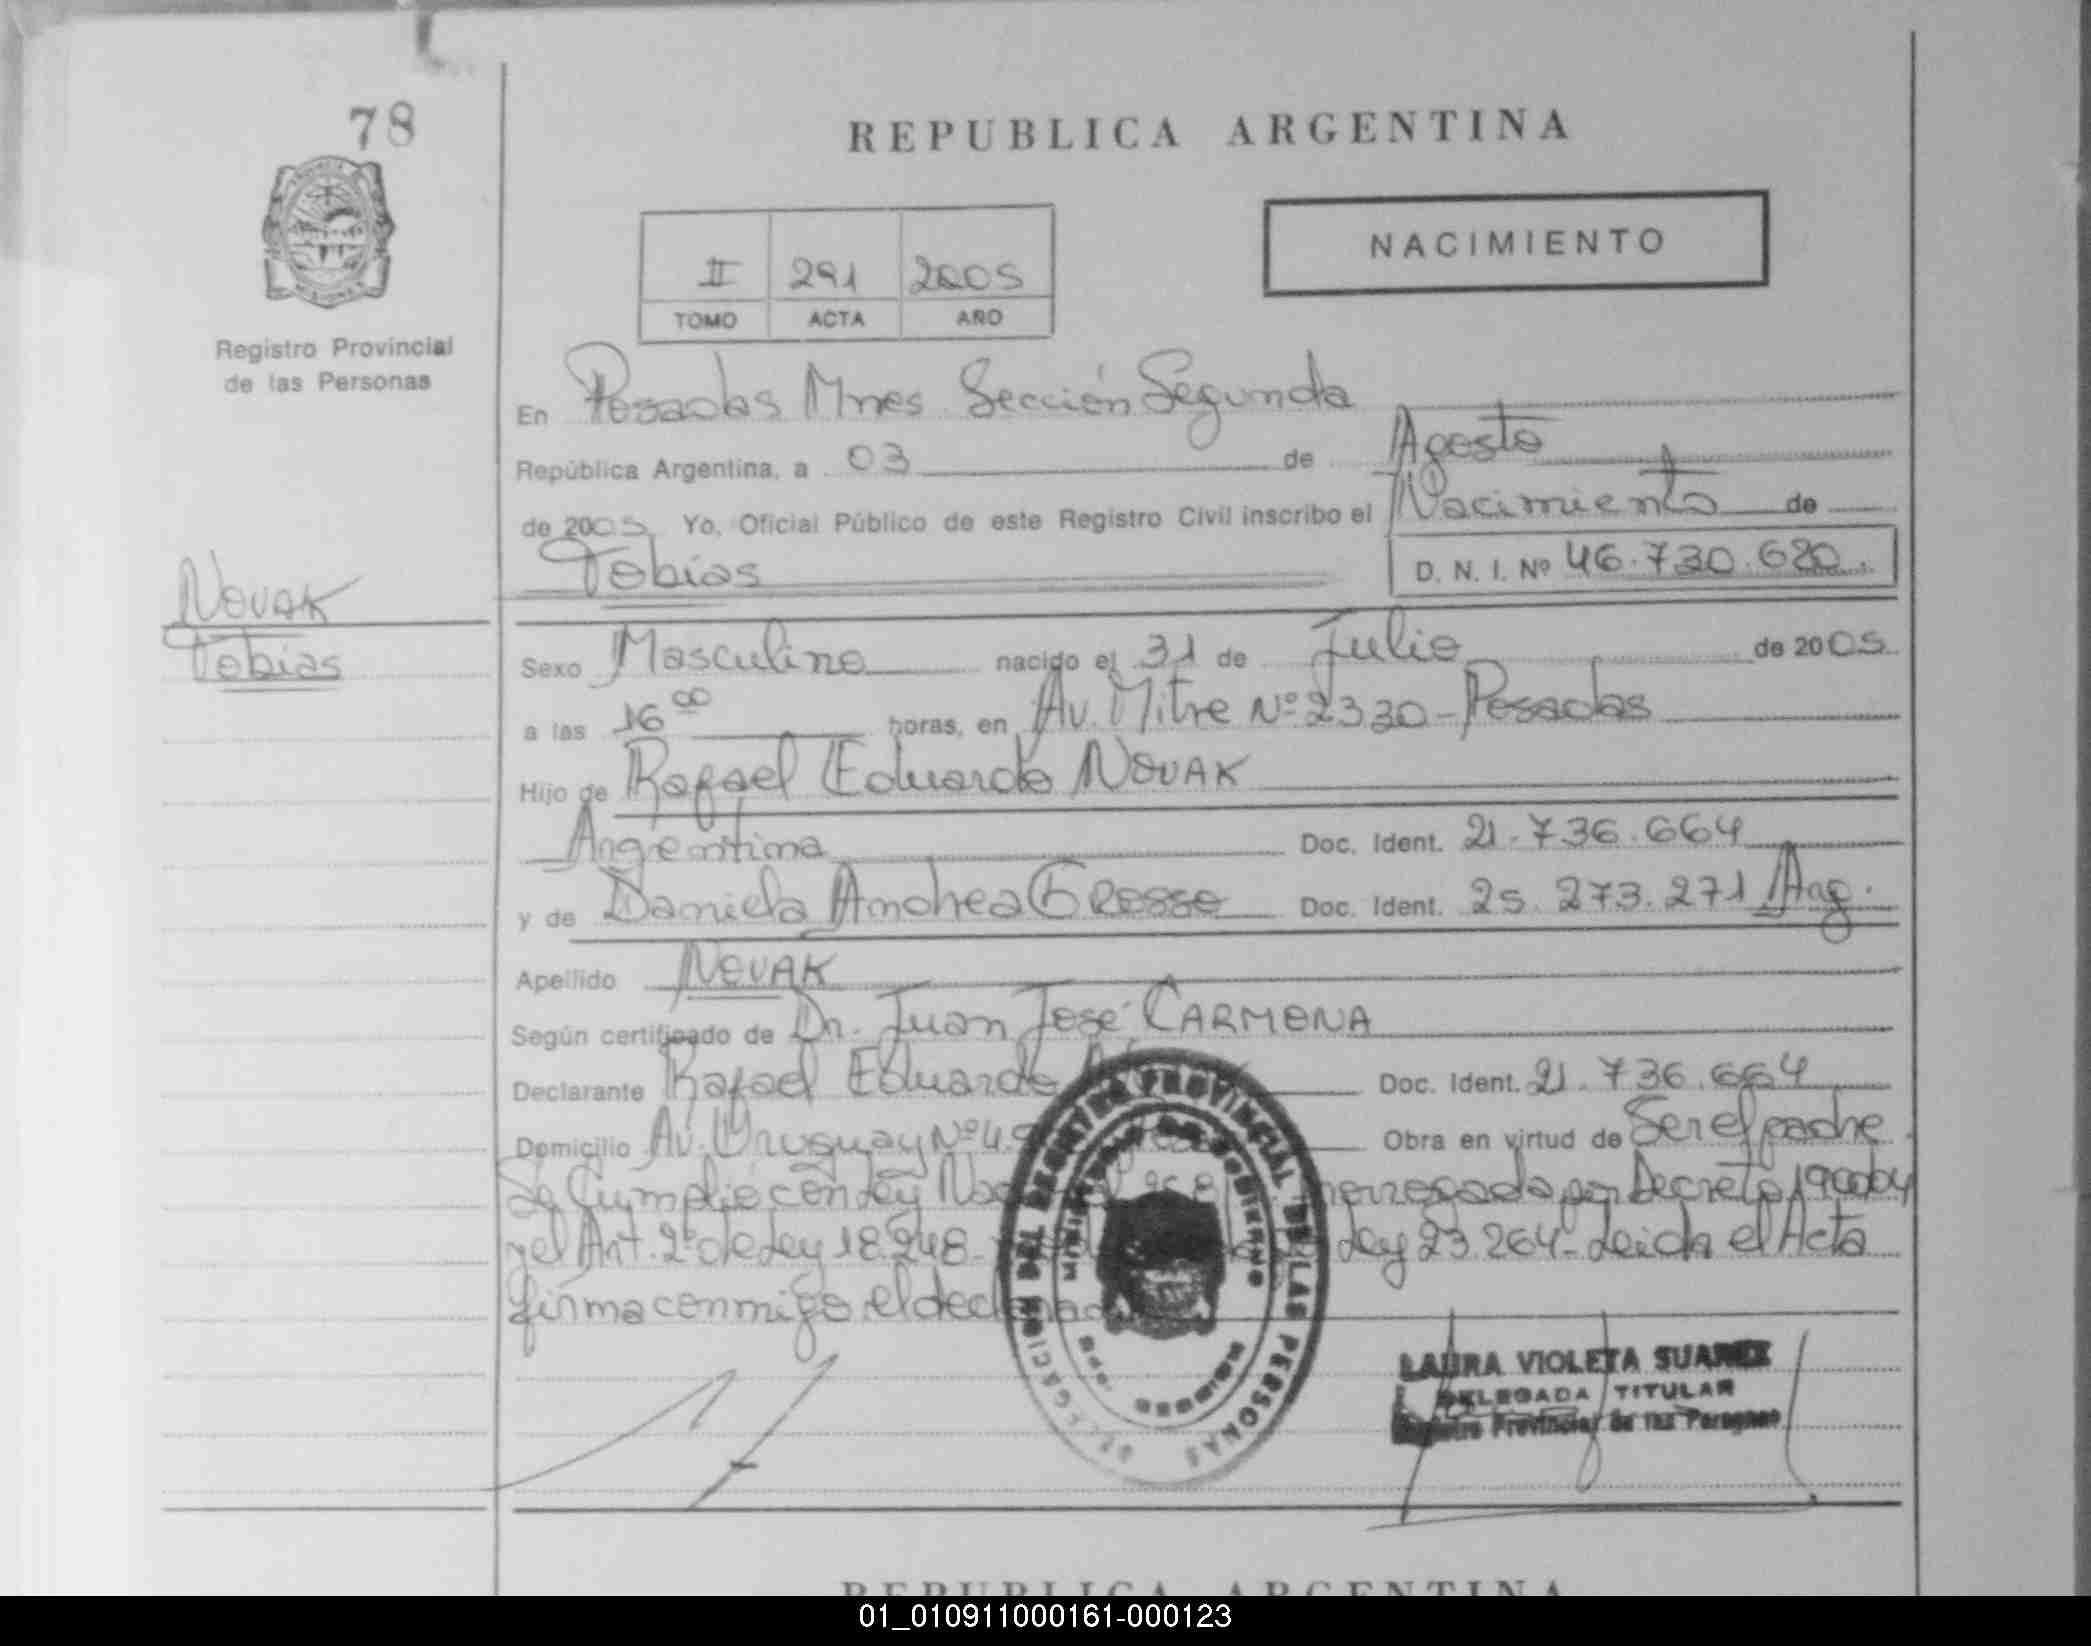 78
REPUBLICA ARGENTINA
NACIMIENTO
II 291 2005
TOMO ACTA AÑO
Registro Provincial
de las Personas
En Posadas Mnes Sección Segunda
República Argentina, a 03 de Agosto
de 2005 Yo, Oficial Público de este Registro Civil inscribo el Nacimiento de
Tobias D. N. I. Nº 46.730.680.
NOVAK
Tobias
Sexo Masculino nacido el 31 de Julio de 2005
a las 16 00 horas, en Av. Mitre Nº 2330 - Posadas
Hijo de Rafael Eduardo NOVAK
Argentina Doc. Ident. 21.736.664
y de Daniela Andrea GROSSO Doc. Ident. 25.273.271 Arg.
Apellido NOVAK
Según certificado de Dr. Juan José CARMONA
Declarante Rafael Eduardo Doc. Ident. 21.736.664
Domicilio Av. Uruguay Nº 4 Obra en virtud de Ser el padre
Se Cumplió con Ley por Decreto 190/04
y el Art. 2º de Ley 18.248 - Ley 23.264 - Leida el Acta
firma conmigo el
DELEGACION DEL REGISTRO PROVINCIAL DE LAS PERSONAS
LAURA VIOLETA SUAREZ
DELEGADA TITULAR
Registro Provincial de las Personas
REPUBLICA ARGENTINA
01_010911000161-000123